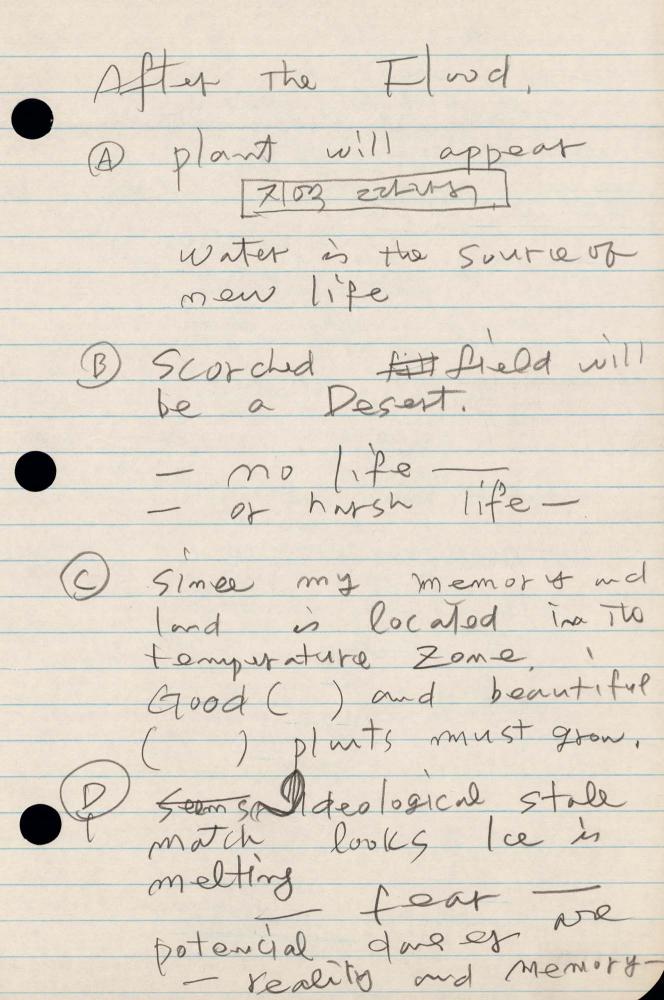 After The Flood.
Ⓐ plant will appear
water is the source of
new life
Ⓑ Scorched field will
be a Desert.
— no life —
— or harsh life —
Ⓒ Since my memory and
land is located in
temperature zone,
Good ( ) and beautiful
( ) plants must grow.
Ⓓ Ideological stale
match looks Ice is
melting
— fear — are
potencial
— reality and memory —